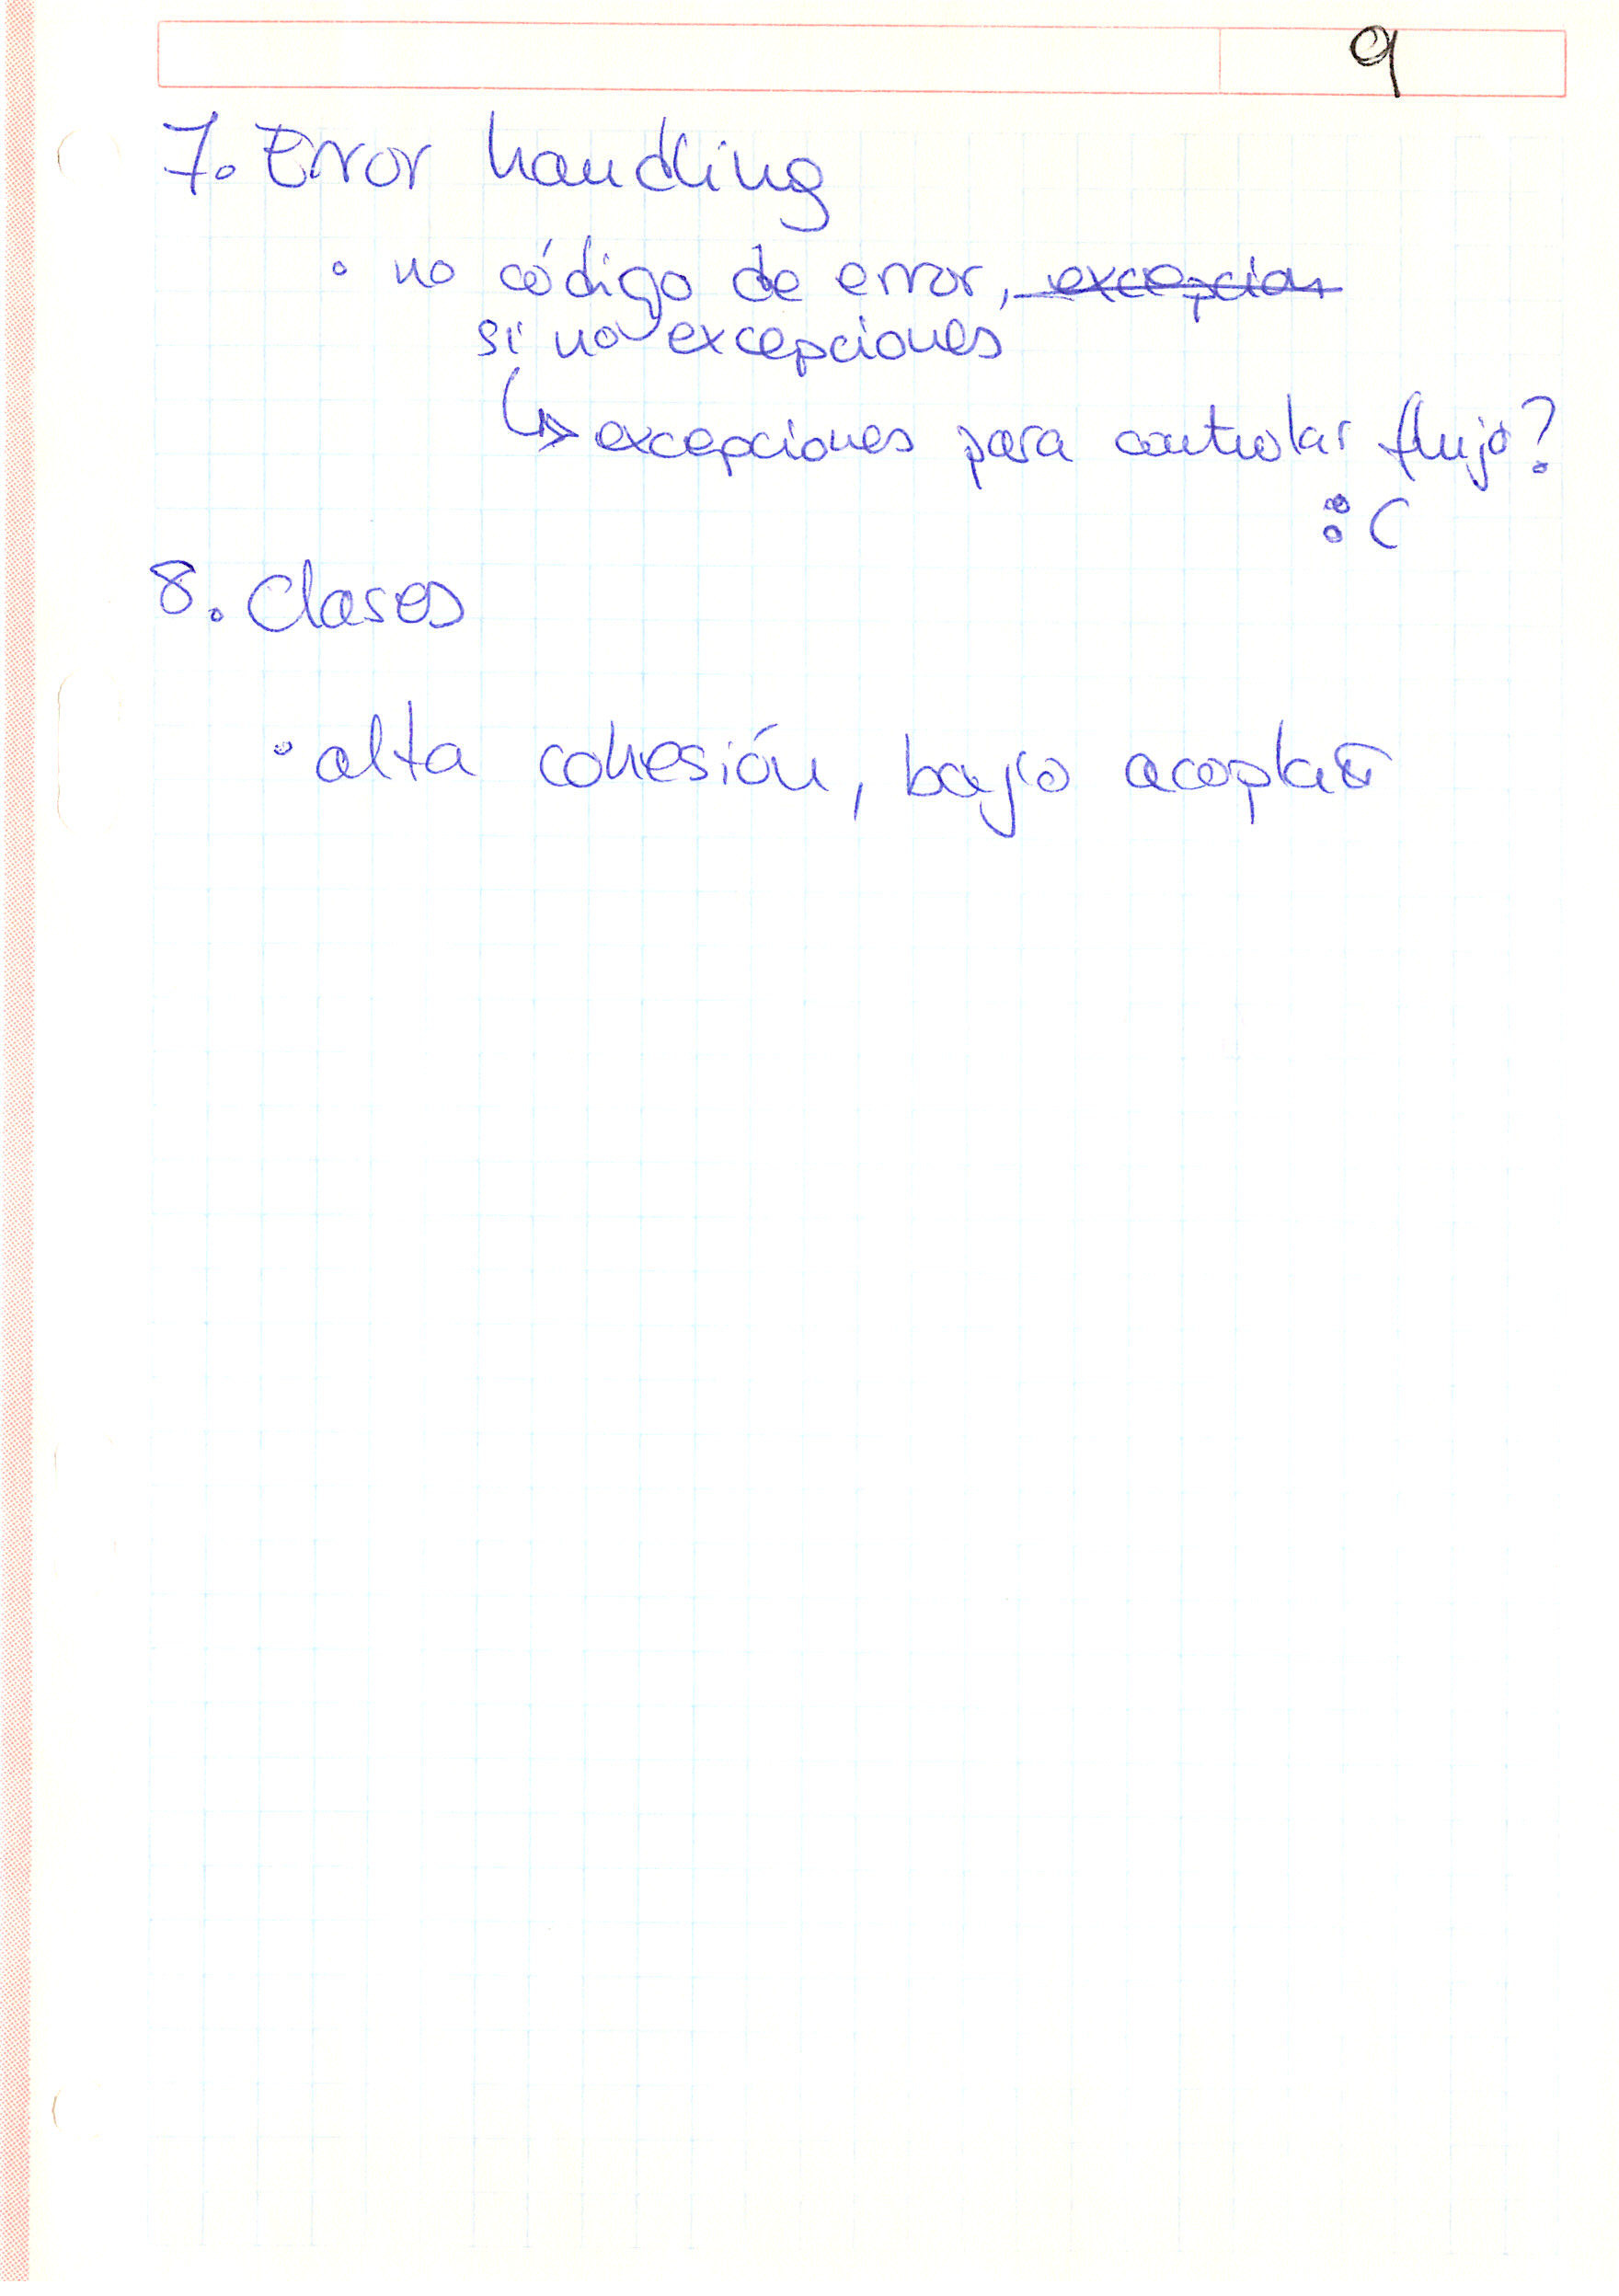 9
7. Error handling
• no código de error, ~~excepcion~~
si no excepciones
↳ excepciones para controlar flujo?
:(
8. Clases
• alta cohesión, bajo